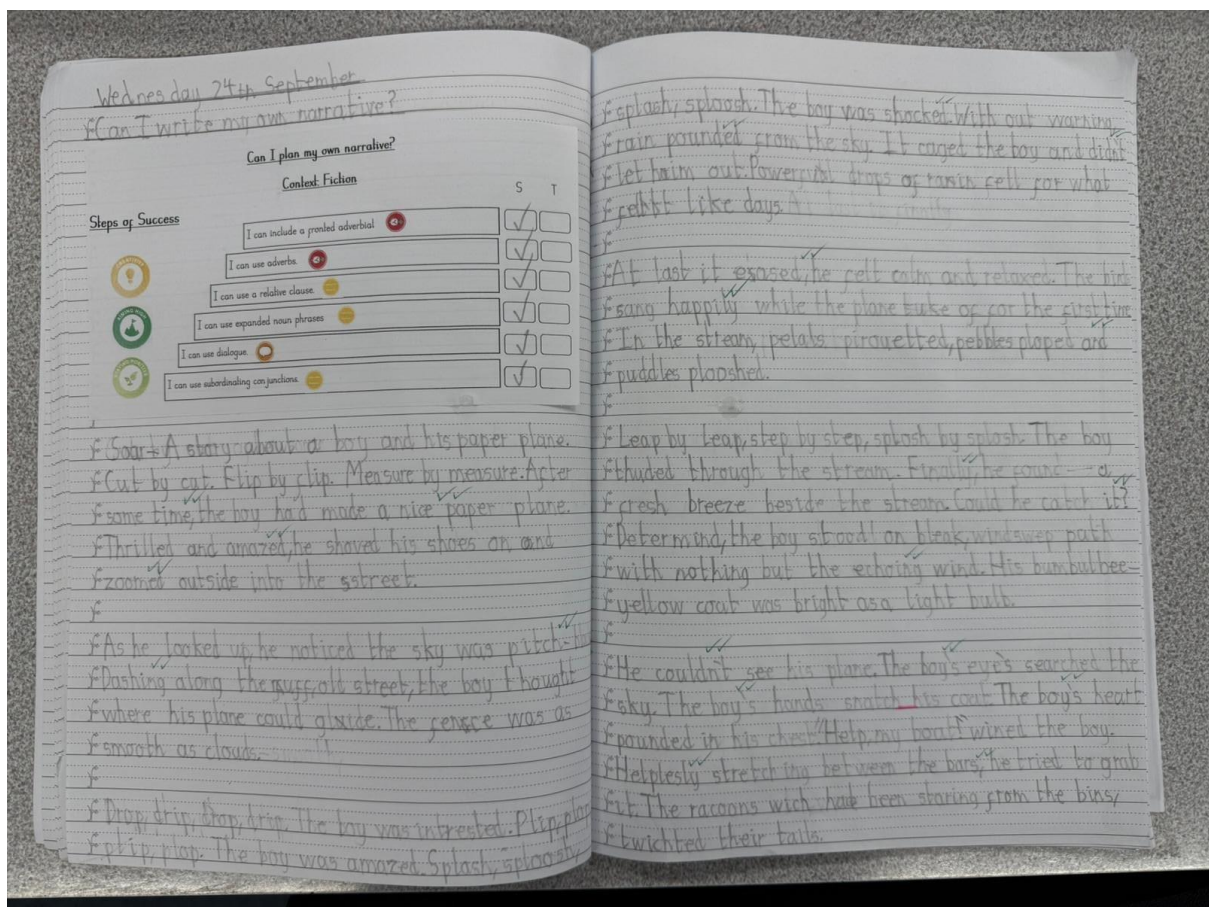 Wednesday 24th September
Can I write my own narrative?
Can I plan my own narrative?
Context: Fiction
S T
Steps of Success
I can include a fronted adverbial
I can use adverbs.
I can use a relative clause.
I can use expanded noun phrases
I can use dialogue.
I can use subordinating conjunctions.
Soar A story about a boy and his paper plane.
Cut by cut. Flip by flip. Measure by measure. After
some time, the boy had made a nice paper plane.
Thrilled and amazed, he shoved his shoes on and
zoomed outside into the sstreet.
As he looked up, he noticed the sky was pitch-
Dashing along the old street, the boy thought
where his plane could glide. The was as
smooth as clouds.
Drop, drip, drop, drip. The boy was intrested. Plip, plop
plip, plop. The boy was amazed. Splash, sploosh,
splash, sploosh. The boy was shocked. With out warning
rain pounded from the sky. It caged the boy and didn't
let him out. Powerful drops of rain fell for what
felt like days.
At last it he felt calm and relaxed. The bird
sang happily while the plane of for the first time
In the stream, petals pirouetted, pebbles ploped and
puddles plooshed.
Leap by leap, step by step, splosh by splosh. The boy
thuded through the stream. Finally, he found a
fresh breeze beside the stream. Could he catch it?
Determind, the boy stood on bleak, windswep path
with nothing but the echoing wind. His bumbulbee-
yellow coat was bright as a light bulb.
He couldn't see his plane. The boy's eye's searched the
sky. The boy's hands snatch his coat. The boy's heart
pounded in his chest. "Help, my boat!" wined the boy.
Helplesly stretching between the bars, he tried to grab
it. The racoons wich had been staring from the bins,
twichted their tails.